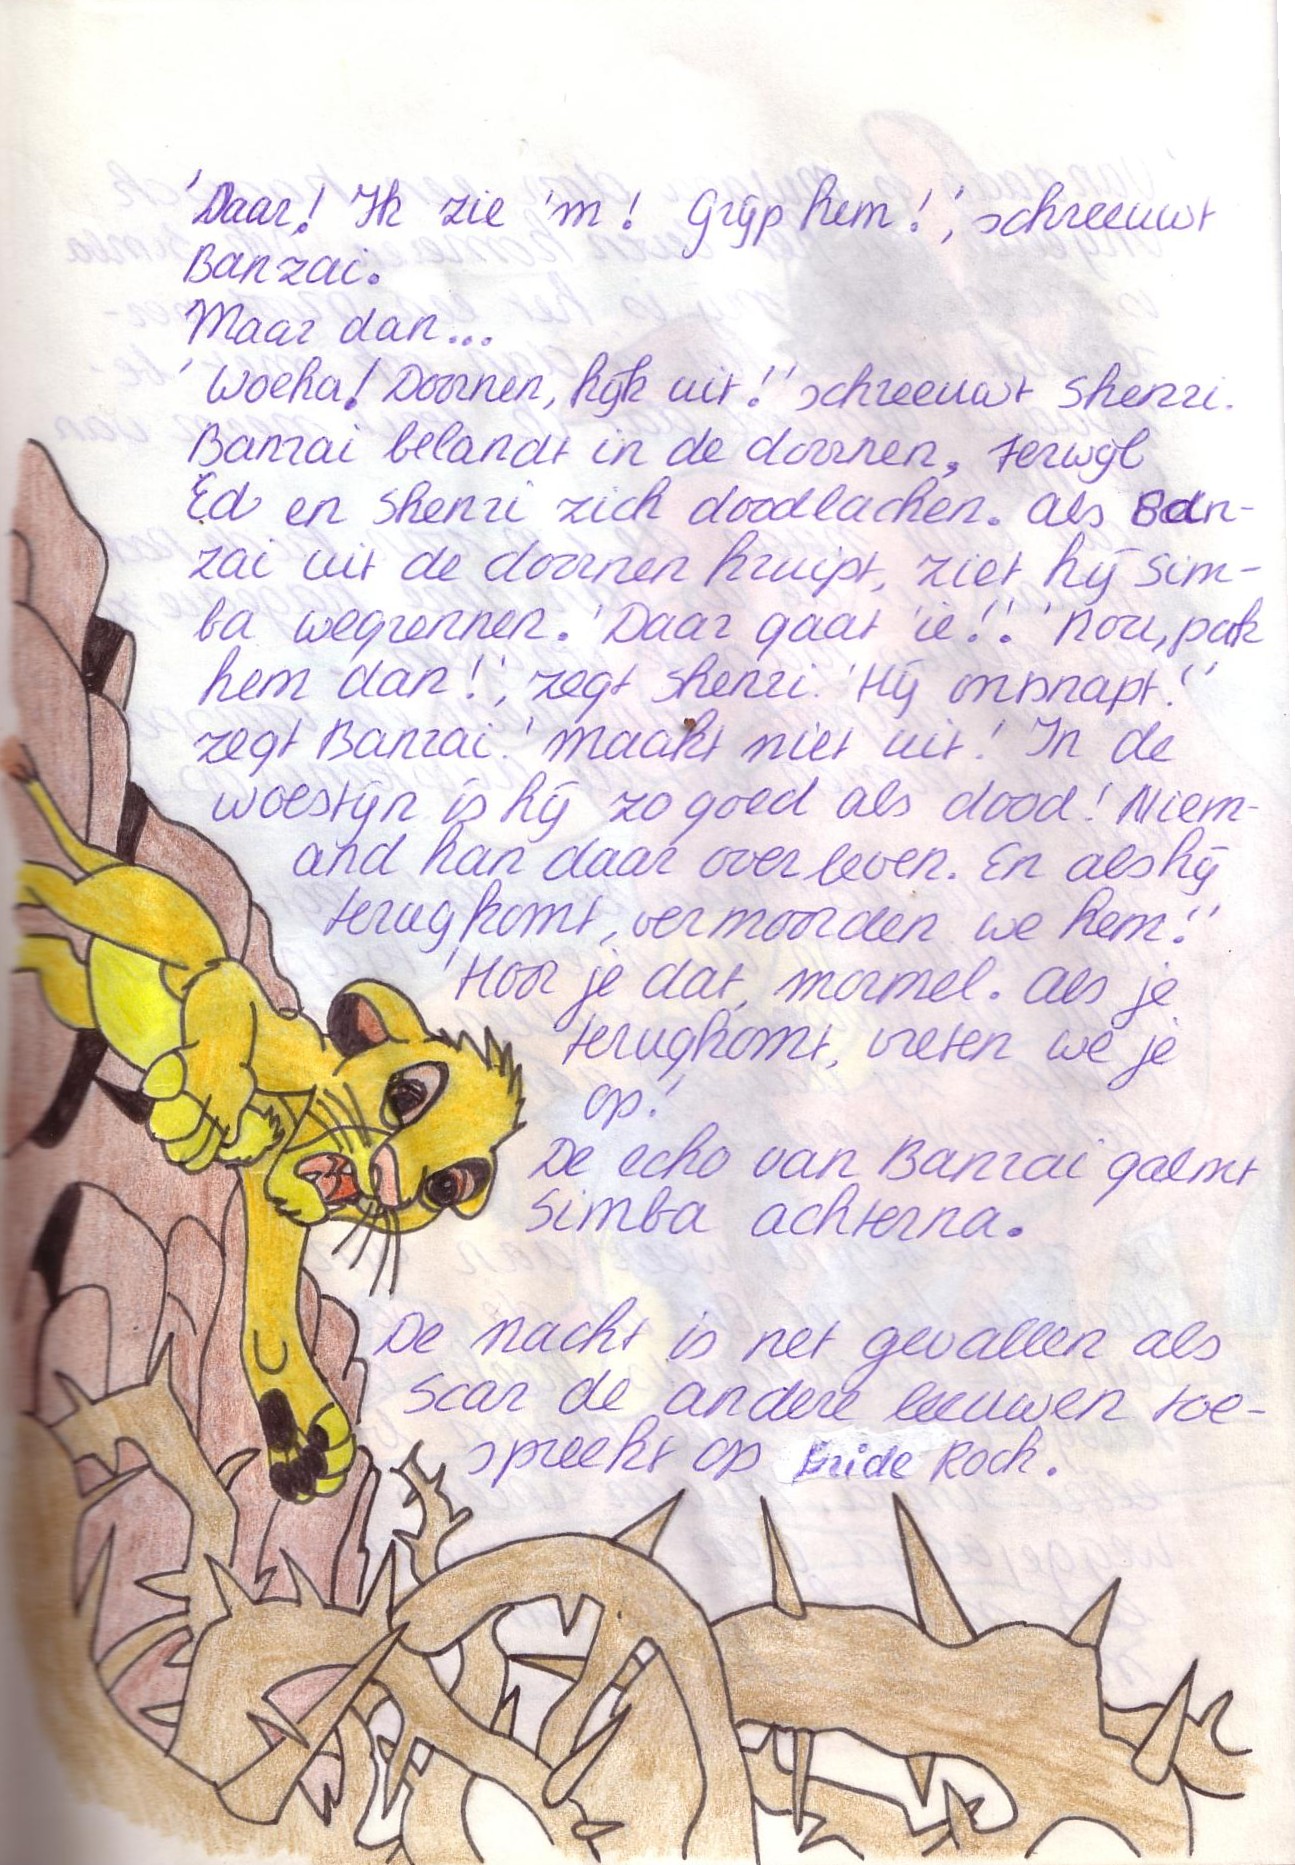 'Daar! Ik zie 'm! Grijp hem!', schreeuwt
Banzai.
Maar dan...
'Woeha! Doornen, kijk uit!' schreeuwt Shenzi.
Banzai belandt in de doornen, terwijl
Ed en Shenzi zich doodlachen. Als Ban-
zai uit de doornen kruipt, ziet hij Sim-
ba wegrennen. 'Daar gaat 'ie!'. 'Nou, pak
hem dan!', zegt Shenzi. 'Hij ontsnapt!'
zegt Banzai. 'Maakt niet uit! In de
woestijn is hij zo goed als dood! Niem-
and kan daar overleven. En als hij
terugkomt, vermoorden we hem!'
'Hoor je dat, mormel. Als je
terugkomt, vreten we je
op!'
De echo van Banzai galmt
Simba achterna.
De nacht is net gevallen als
Scar de andere leeuwen toe-
spreekt op Pride Rock.